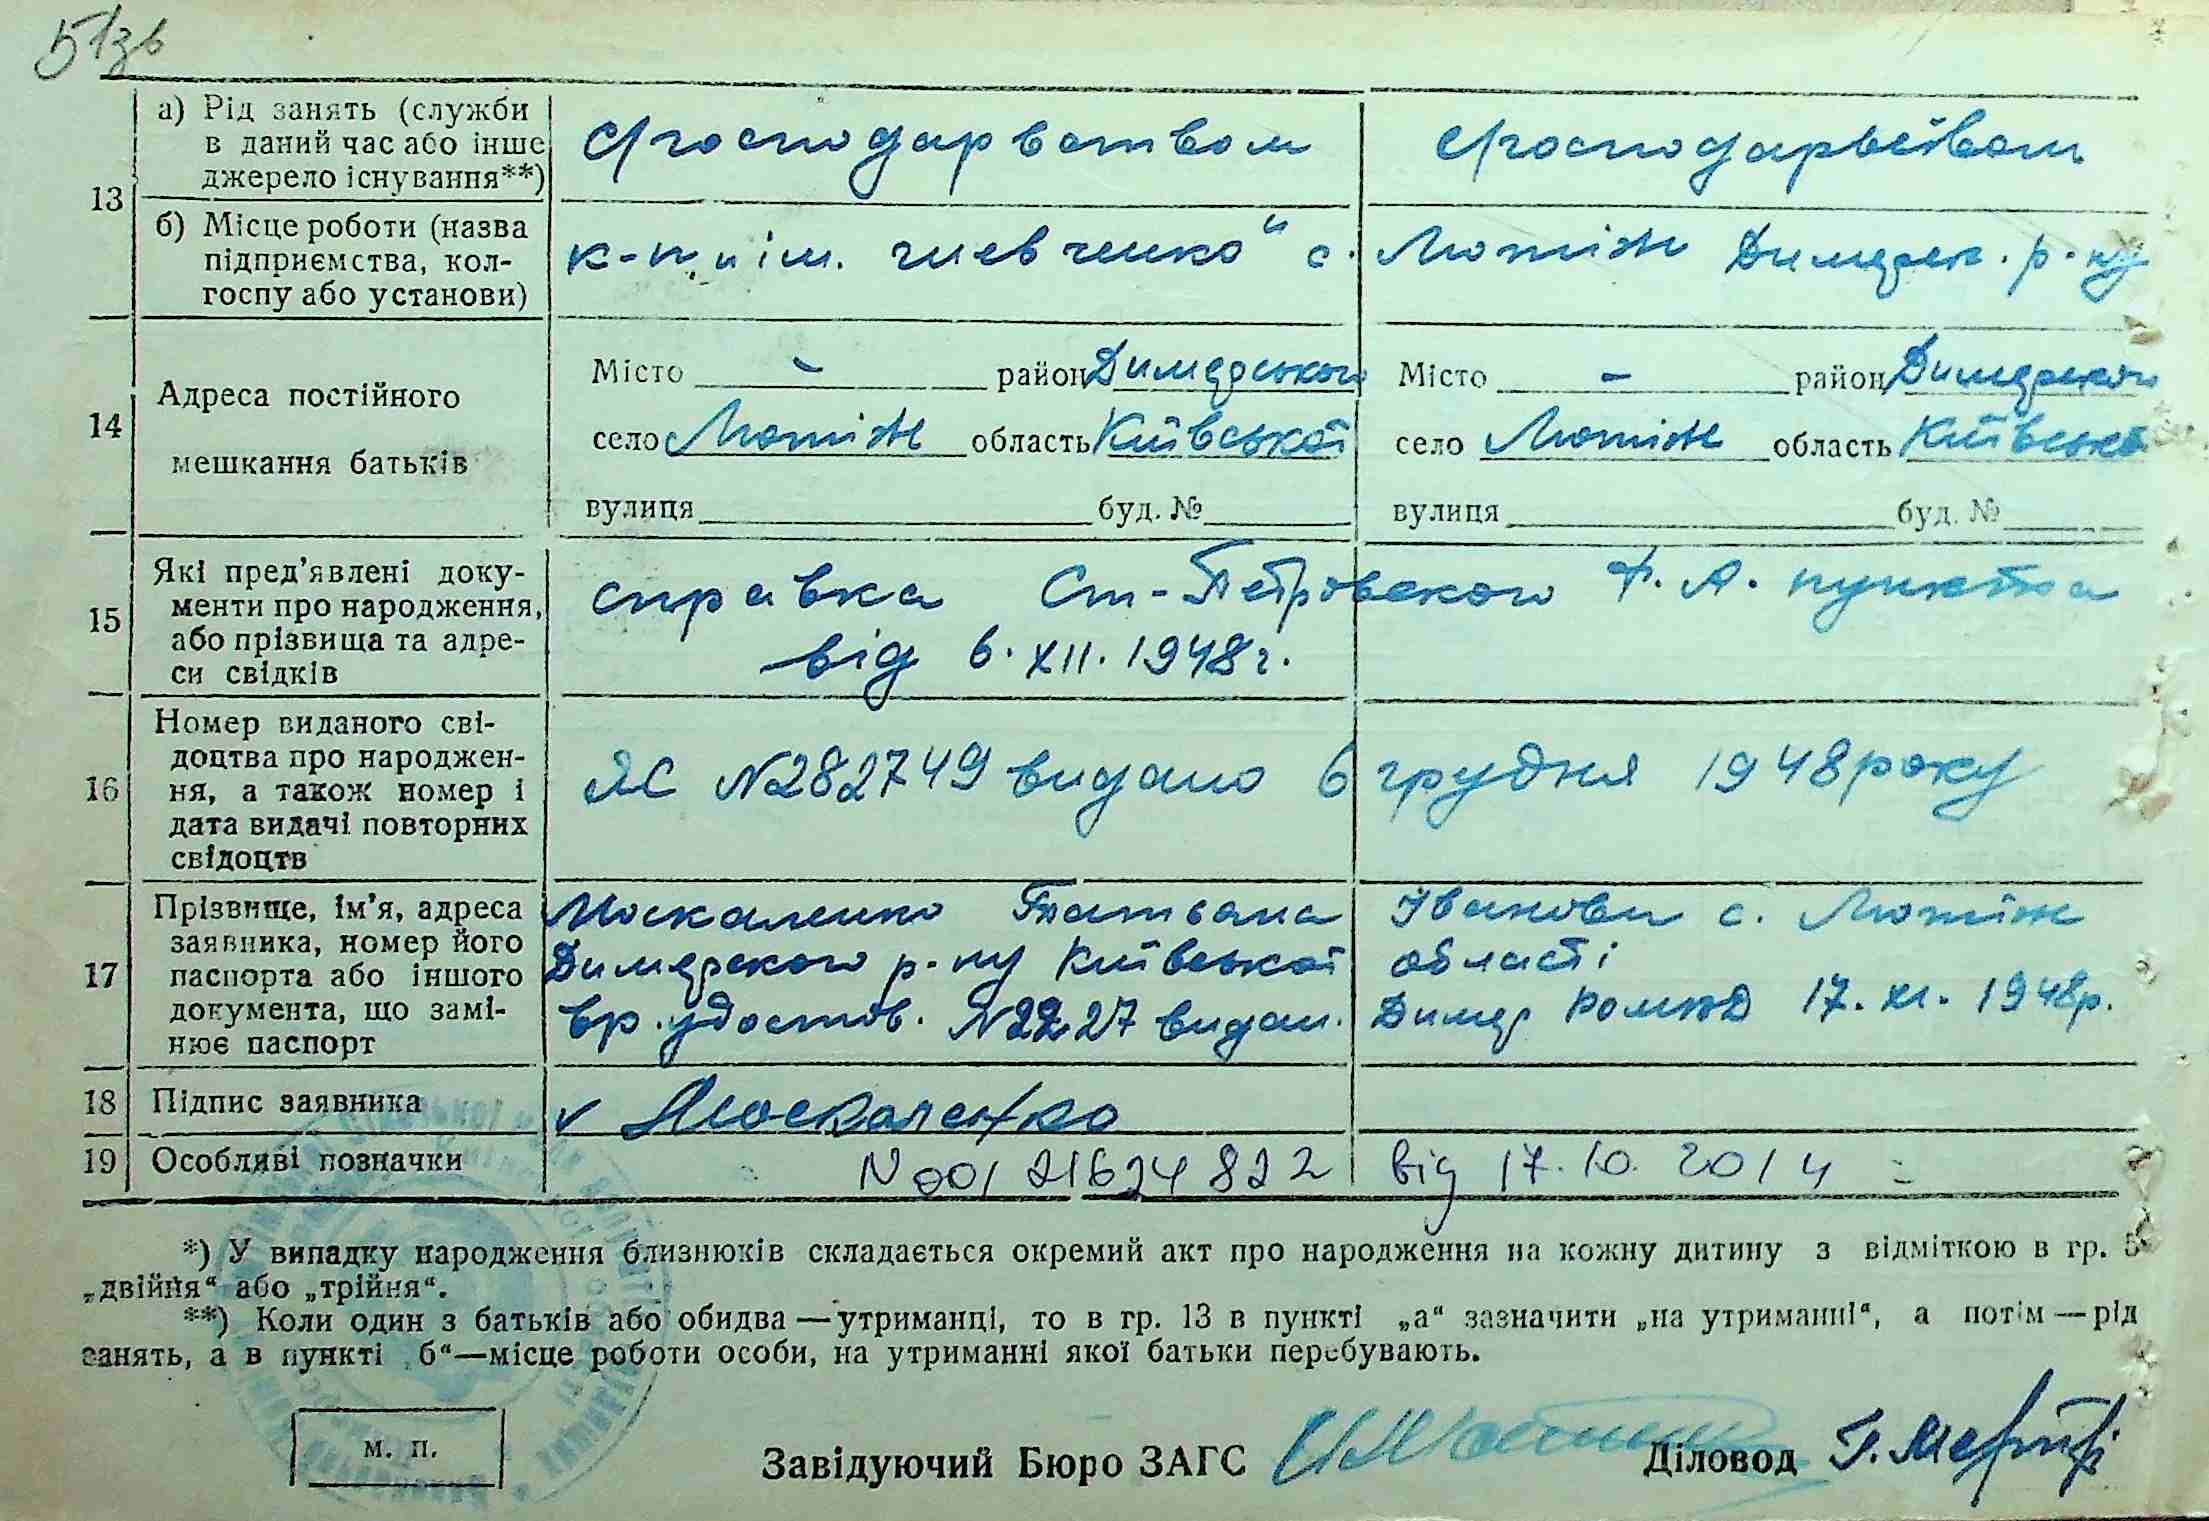 51зв
13
а) Рід занять (служби в даний час або інше джерело існування**)
с/господарвством
с/господарвством
б) Місце роботи (назва підприємства, колгоспу або установи)
к-п „ім. Шевченко“ с. Лютіж Димерск. р-ну
14
Адреса постійного мешкання батьків
Місто - район Димерського
село Лютіж область Київської
вулиця буд. №
Місто - район Димерского
село Лютіж область Київської
вулиця буд. №
15
Які пред'явлені документи про народження, або прізвища та адреси свідків
справка Ст-Петровского Ф. А. пункта
від 6. XII. 1948 г.
16
Номер виданого свідоцтва про народження, а також номер і дата видачі повторних свідоцтв
ЯС N282749 видано 6 грудня 1948 року
17
Прізвище, ім'я, адреса заявника, номер його паспорта або іншого документа, що замінює паспорт
Москаленко Татьяна Івановн с. Лютіж
Димерского р-ну Київської області
вр. удостов. N2227 видан. Димер 17. XI. 1948р.
18
Підпис заявника
v Москаленко
19
Особливі позначки
N 00121624822 від 17.10.2014
*) У випадку народження близнюків складається окремий акт про народження на кожну дитину з відміткою в гр. 5
„двійня“ або „трійня“.
**) Коли один з батьків або обидва — утриманці, то в гр. 13 в пункті „а“ зазначити „на утриманні“, а потім — рід
занять, а в пункті б“—місце роботи особи, на утриманні якої батьки перебувають.
м. п.
Завідуючий Бюро ЗАГС
Діловод